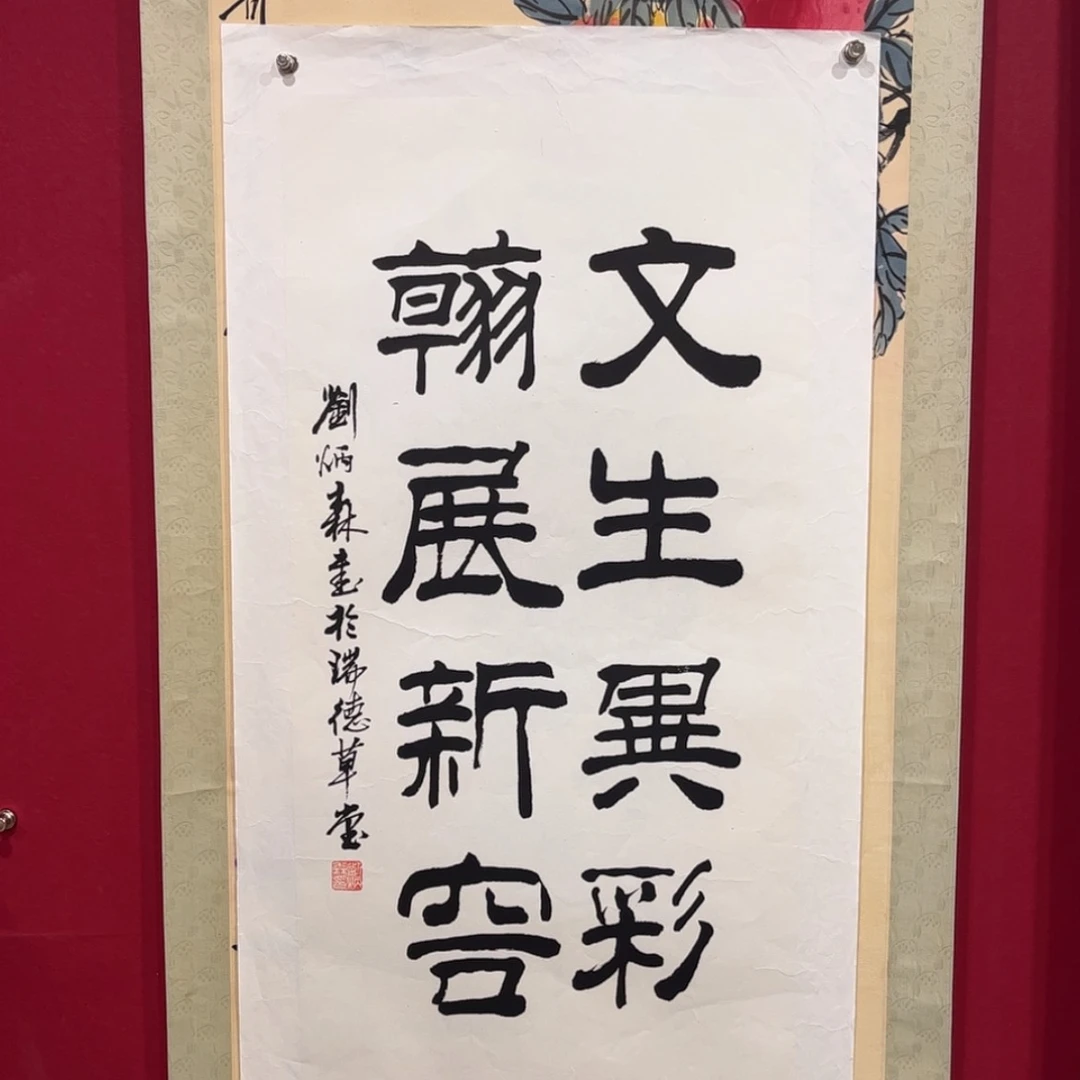 文生異彩
翰展新容
劉炳森書於瑞德草堂